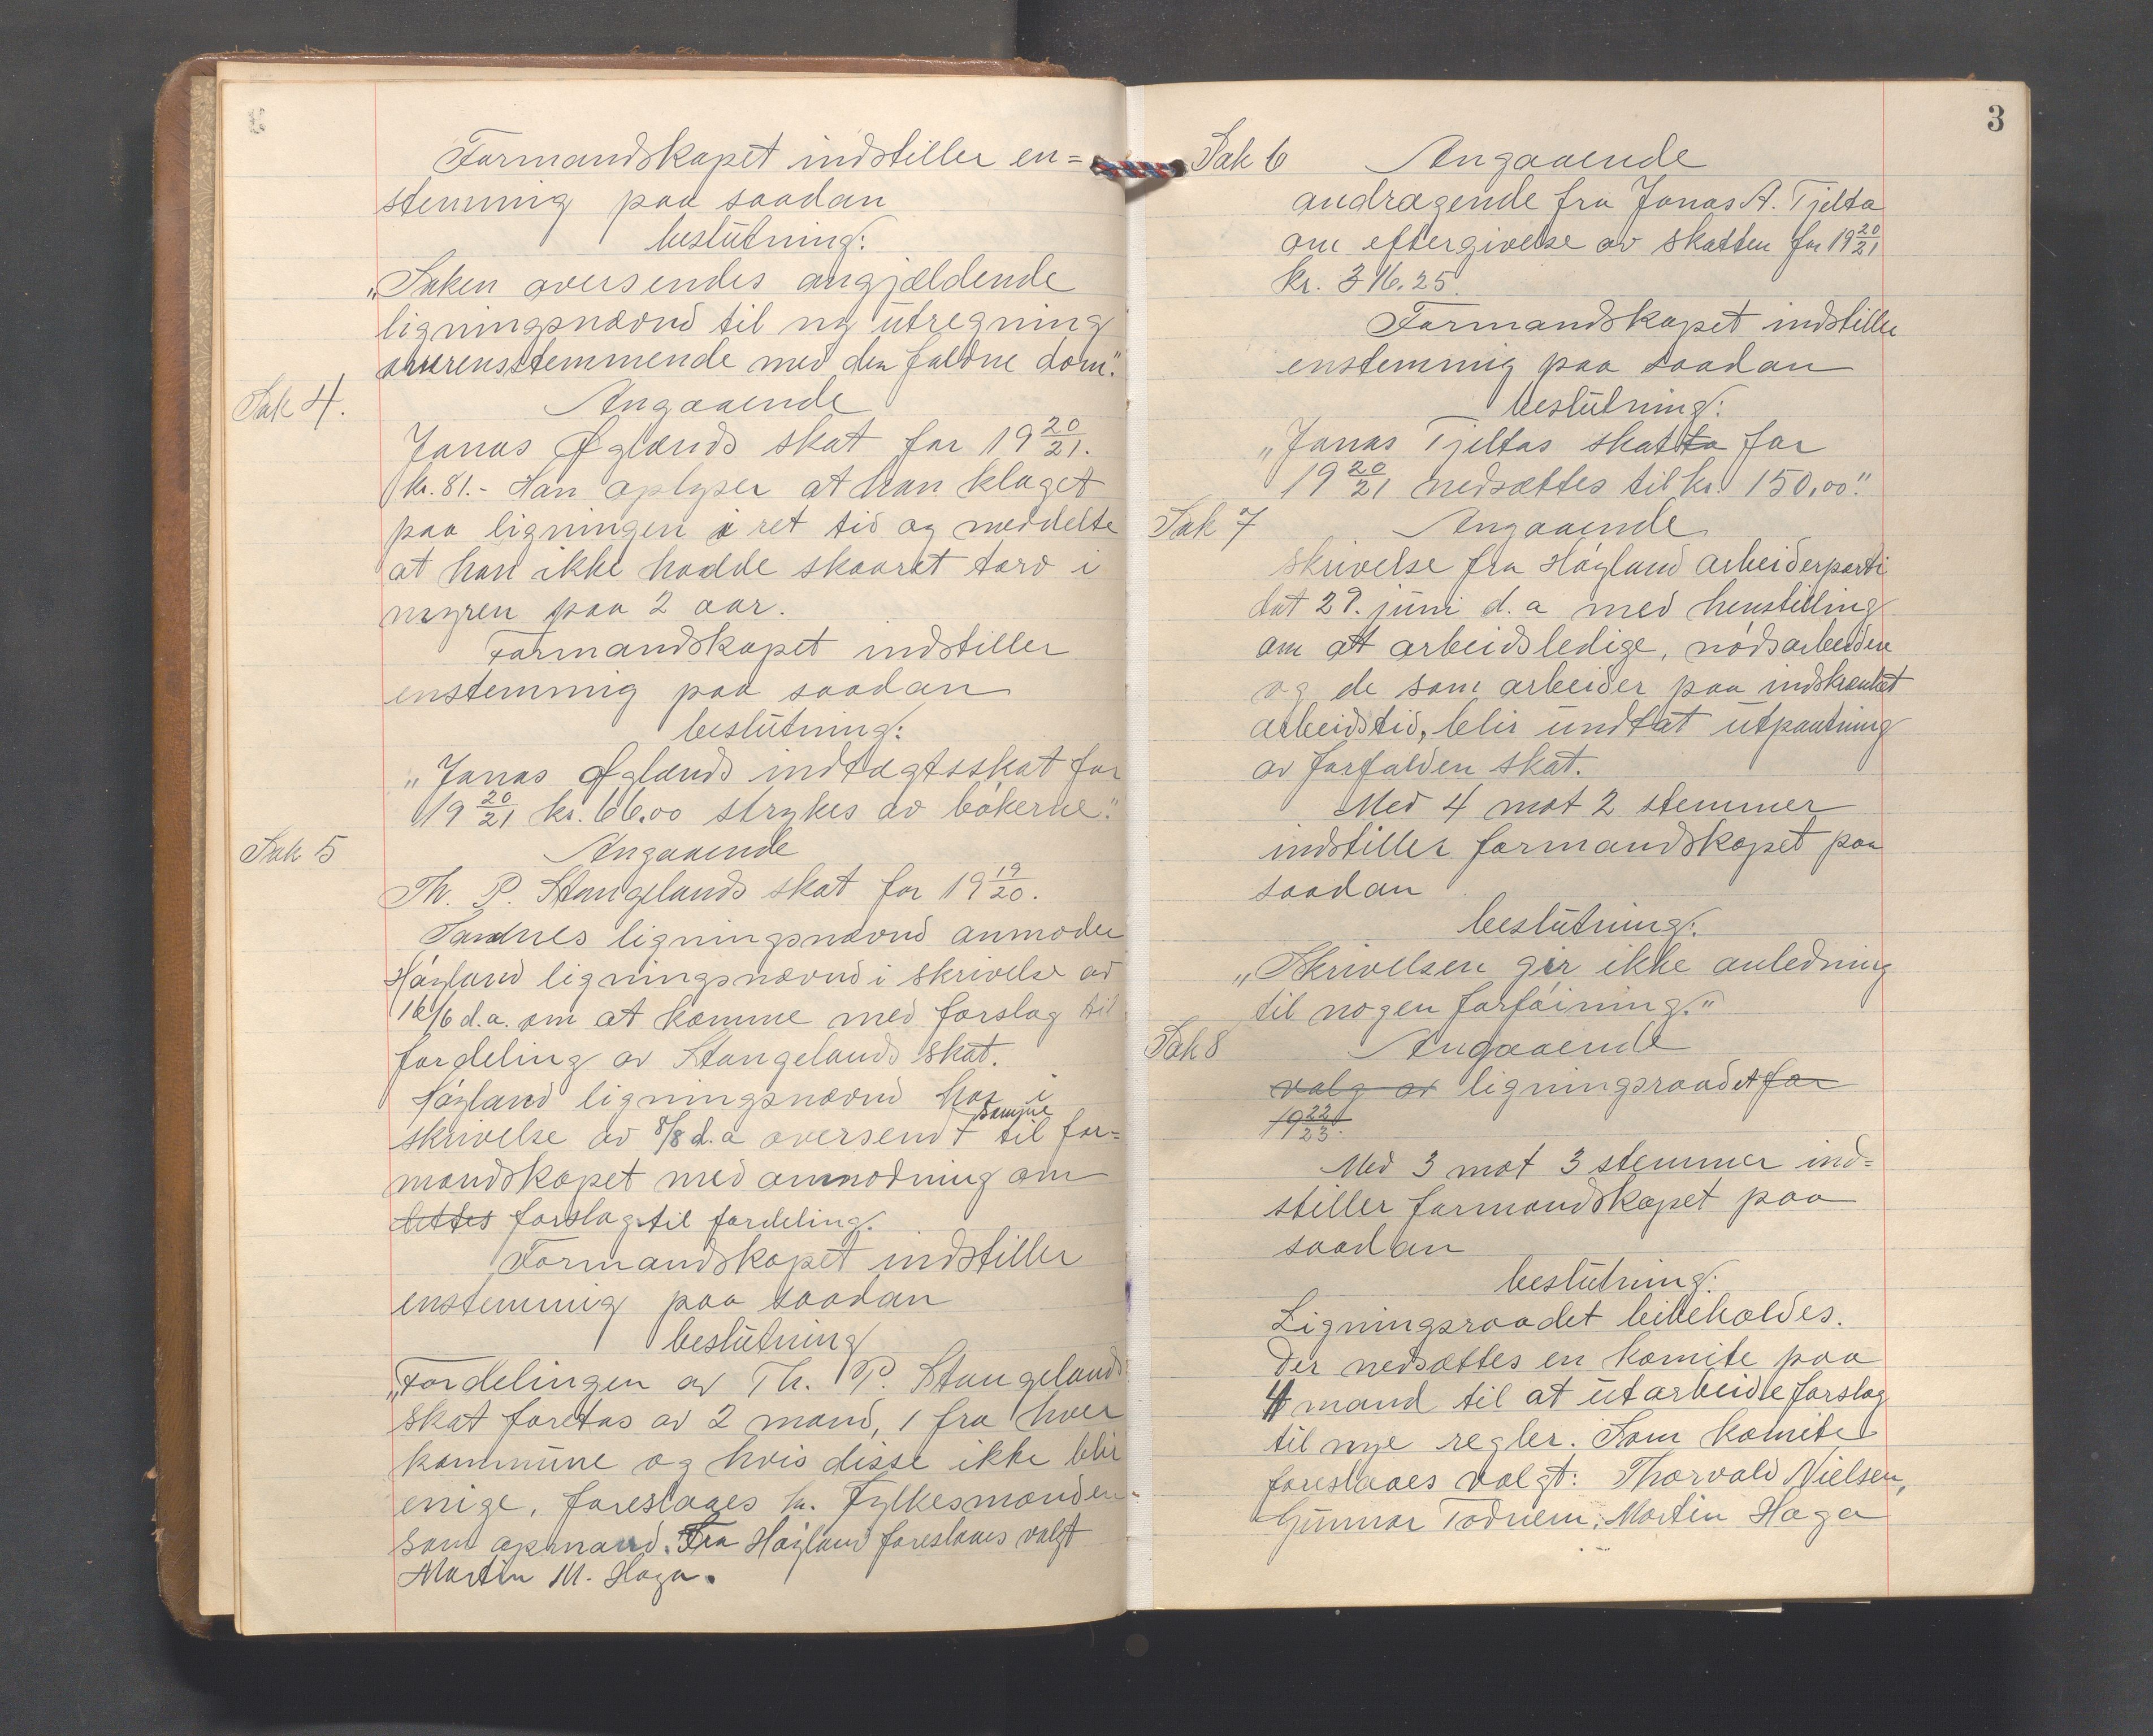 Formandskapet indstiller en=
stemmig paa saadan
beslutning:
„Saken oversendes angjældende
ligningsnævnd til ny utregning
overensstemmende med den faldne dom."
Sak 4. Angaaende
Jonas Øglænds skat for 19 20/21.
kr. 81.- Han oplyser at han klaget
paa ligningen i ret tid og meddelte
at han ikke hadde skaaret torv i
myren paa 2 aar.
Formandskapet indstiller
enstemmig paa saadan
beslutning:
„Jonas Øglænds indtægtsskat for
19 20/21 kr. 66.00 strykes av bókerne."
Sak 5 Angaaende
Th. P. Stangelands skat for 19 19/20.
Sandnes ligningsnævnd anmoder
Hóyland ligningsnævnd i skrivelse av
16/6 d.a. om at komme med forslag til
fordeling av Stangelands skat.
Hóyland ligningsnævnd har i
skrivelse av 8/8 d.a oversendt samme til for=
mandskapet med anmodning om
dettes forslag til fordeling.
Formandskapet indstiller
enstemmig paa saadan
beslutning
„Fordelingen av Th. P. Stangelands
skat foretas av 2 mand, 1 fra hver
kommune og hvis disse ikke blir
enige, foreslaaes hr. Fylkesmanden
som opmand. Fra Hóyland foreslaaes valgt
Martin M. Haga.
3
Sak 6 Angaaende
andragende fra Jonas A. Tjelta
om eftergivelse av skatten for 19 20/21
kr. 316.25.
Formandskapet indstiller
enstemmig paa saadan
beslutning:
„Jonas Tjeltas skatta for
19 20/21 nedsættes til kr. 150.00."
Sak 7 Angaaende
skrivelse fra Hóyland arbeiderparti
dat 29. juni d.a med henstilling
om at arbeidsledige, nódsarbeidere
og de som arbeider paa indskrænket
arbeidstid, blir undtat utpantning
av forfalden skat.
Med 4 mot 2 stemmer
indstiller formandskapet paa
saadan
beslutning:
„Skrivelsen gir ikke anledning
til nogen forfóining."
Sak 8 Angaaende
valg av ligningsraadet for
19 22/23.
Med 3 mot 3 stemmer ind=
stiller formandskapet paa
saadan
beslutning:
Ligningsraadet beibeholdes.
Der nedsættes en komite paa
4 mand til at utarbeide forslag
til nye regler. Som komite
foreslaaes valgt: Thorvald Nielsen,
Gunnar Todnem, Martin Haga